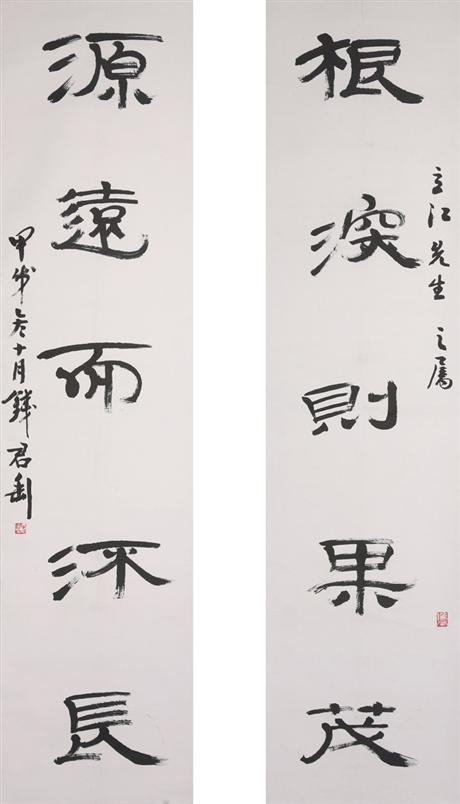 立江先生之屬
根深則果茂
源遠而流長
甲戌冬十月錢君匋